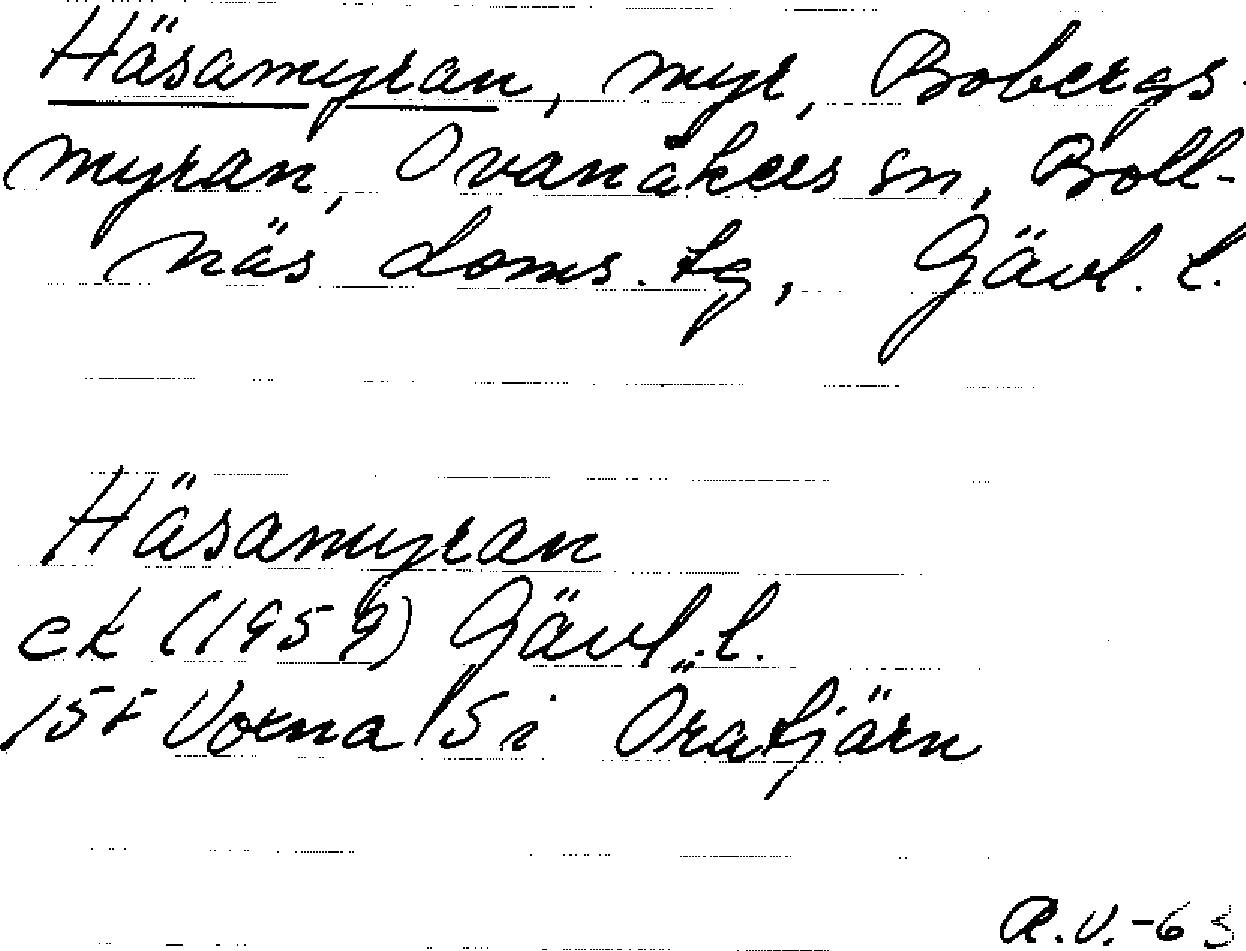 Häsamyran, myr, Bobergs-
myran, Ovanåkers sn, Boll-
näs doms. tg, Gävl. l.
Häsamyran
ek (1959) Gävl. l.
15F Voxna 5 i Öratjärn
R.V.-63